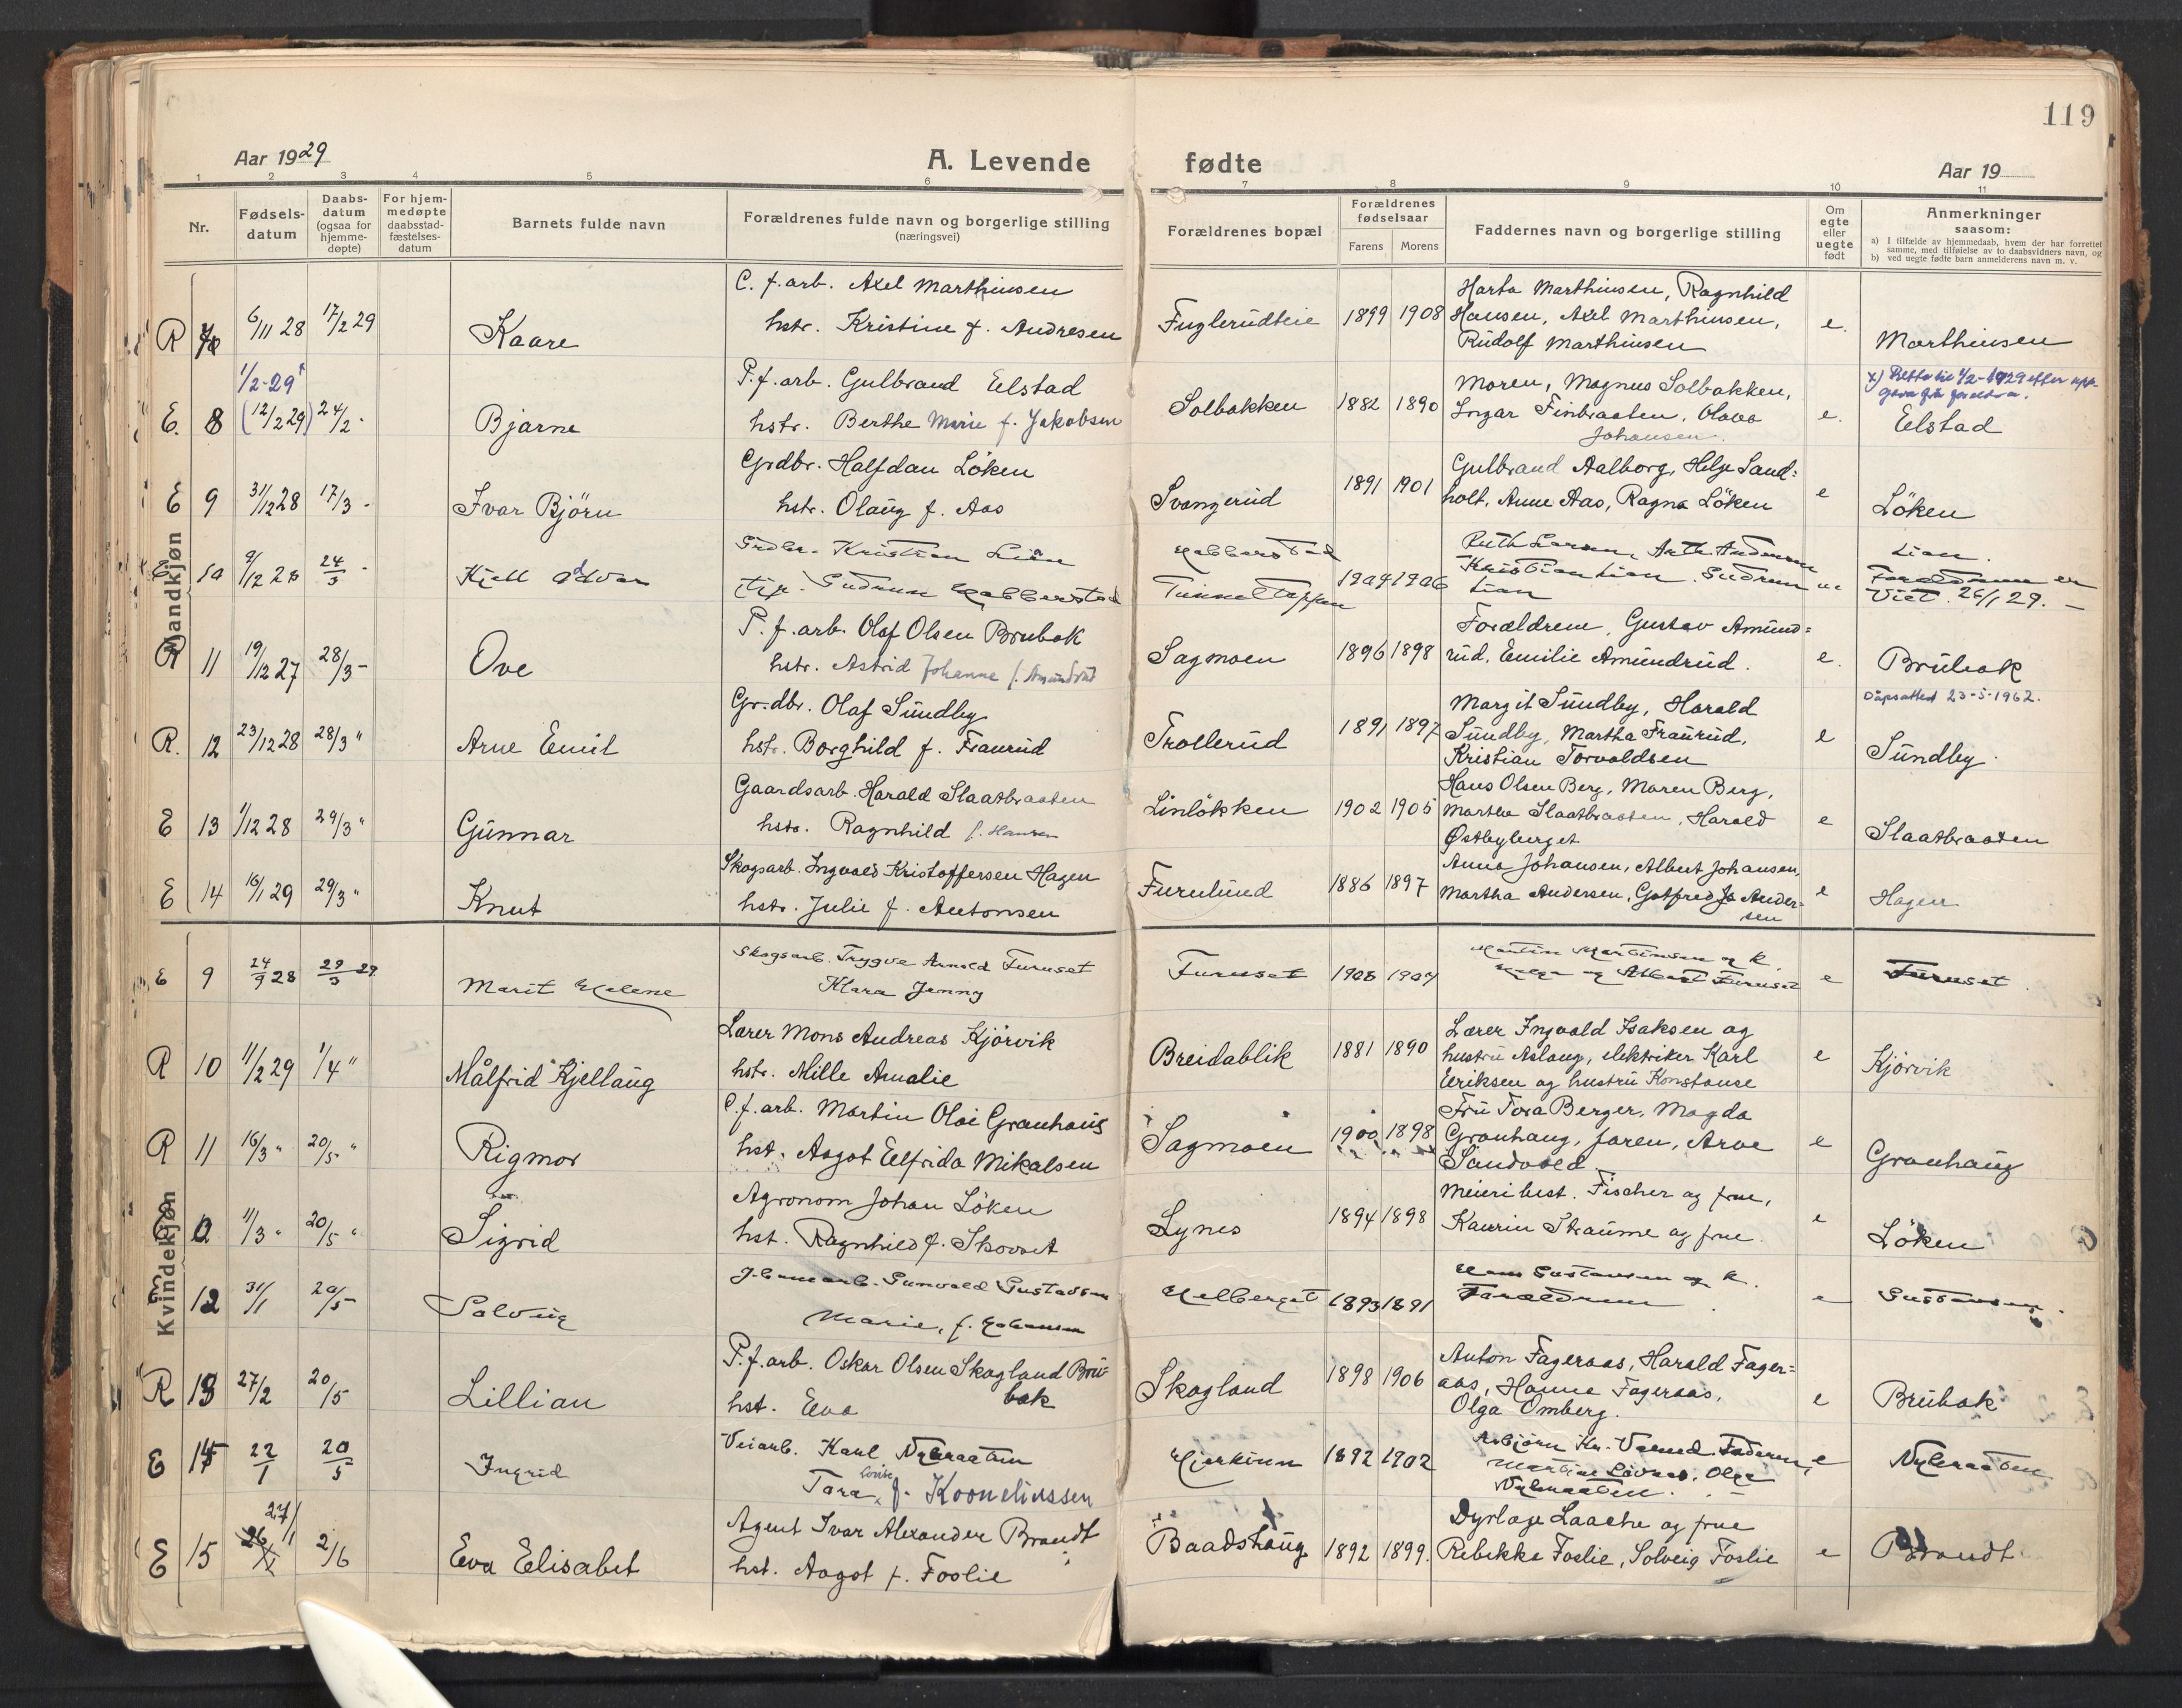 119
Aar 1929
A. Levende fødte
Aar 19
1 2 3 4 5 6 7 8 9 10 11
Nr.
Fødsels-
datum
Daabs-
datum
(ogsaa for
hjemme-
døpte)
For hjem-
medøpte
daabsstad-
fæstelses-
datum
Barnets fulde navn
Forældrenes fulde navn og borgerlige stilling
(næringsvei)
Forældrenes bopæl
Forældrenes
fødselsaar
Farens Morens
Faddernes navn og borgerlige stilling
Om
egte
eller
uegte
født
Anmerkninger
saasom:
a) I tilfælde av hjemmedaab, hvem der har forrettet
samme, med tilføielse av to daabsvidners navn, og
b) ved uegte fødte barn anmelderens navn m. v.
Mandkjøn
R 6/11 28 17/2 29 Kaare
C. f. arb. Axel Marthinsen
hstr. Kristine f. Andresen
Fuglerudteie 1899 1908
Marthinsen, Ragnhild
Hansen, Axel Marthinsen,
Rudolf Marthinsen
e. Marthinsen
1/2-29
E. 8 (12/2 29) 24/2 - Bjarne
P. f. arb. Gulbrand Eelstad
hstr. Berthe Marie f. Jakobsen
Solbakken 1882 1890
Moren, Magnus Solbakken,
Ingar Finbraaten, Olava
Johansen.
e.
x) Rettet til 1/2-1929 efter
Eelstad
E 9 31/12 28 17/3 - Ivar Björn
Grdbr. Halfdan Löken
hstr. Olaug f. Aas
Svangerud 1891 1901
Gulbrand Aalborg, Helge Sand-
holt, Anne Aas, Ragna Löken
e Löken
E 10 9/12 28 24/3 - Kjell Advar
Grdbr. Kristian Lien
Gudrun Habberstad
Habberstad
Tunneltoppen 1904 1906
Ruth Larsen, Arth. Andersen
Kristian Lian. Gudrun
Lian
ue
Lian.
Foreldrene er
Viet. 26/1 29.
R 11 19/12 27 28/3 - Ove
P. f. arb. Olaf Olsen Brubak
hstr. Astrid Johanne f. Amundrud
Sagmoen 1896 1898
Forældrene, Gustav Amund-
rud, Emilie Amundrud.
e. Brubak
Dåpsattest 23-5-1962.
R. 12 23/12 28 28/3 " Arne Emil
Gr.dbr. Olaf Sundby
hstr. Borghild f. Fraurud
Trollerud 1891 1897
Margit Sundby, Harald
Sundby, Martha Fraurud,
Kristian Torvaldsen
e Sundby
E 13 1/12 28 29/3 " Gunnar
Gaardsarb. Harald Slaatbraaten
hstr. Ragnhild f. Hansen
Linlökken 1902 1905
Hans Olsen Berg, Maren Berg,
Martha Slaatbraaten, Harald
Østbyberget
e Slaatbraaten
E 14 16/1 29 29/3 " Knut
Skogsarb. Ingvald Kristoffersen Hagen
hstr. Julie f. Antonsen
Furulund 1886 1897
Anna Johansen, Albert Johansen,
Martha Andersen, Gotfred Ander-
sen
e Hagen
Kvindekjøn
E 9 24/9 28 29/3 29 Marit Helene
Skogsarb. Trygve Arnold Furuset
Klara Jenny
Furuset 1908 1907
Martin Martinsen og k.
og Albert Furuset
e Furuset.
R 10 11/2 29 1/4 " Målfrid Kjellaug
Lærer Mons Andreas Kjörvik
hstr. Mille Amalie
Breidablik 1881 1890
Lærer Ingvald Isaksen og
hustru Aslaug, elektriker Karl
Eriksen og hustru Konstanse
e Kjörvik
R 11 16/3 " 20/5 " Rigmor
C. f. arb. Martin Olai Granhaug
hst. Aagot Elfrida Mikalsen
Sagmoen 1900 1898
Fru Tora Berger, Magda
Granhaug, faren, Arve
Sandvold
e Granhaug
11/3 " 20/5 " Sigrid
Agronom Johan Löken
hst. Ragnhild f. Skovset
Lynes 1894 1898
Meieribest. Fischer og frue,
Kaurin Straume og frue
e Löken
E 12 31/1 20/5 - Solveig
Gunvald Gustavsen
Marie, f. Johansen
Helberget 1893 1891
Hans Gustavsen og k.
Foreldrene
e Gustavsen.
R 13 27/2 20/5 Lillian
P. f. arb. Oskar Olsen Skogland Bru-
bak
hst. Eva
Skogland 1898 1906
Anton Fageraas, Harald Fager-
aas, Hanne Fageraas,
Olga Omberg.
e Brubak
E 14 22/1 20/5 Ingrid
Veiarb. Karl Nybraaten
Tora Lovise f. Korneliussen
Hjerkinn 1892 1902
Asbjørn Kr. Faderen,
Martine Olga
Nybraaten.
e Nybraaten
27/1
E 15 26/1 2/6 Eva Elisabet
Agent Ivar Alexander Brandt
hst. Aagot f. Foslie
Baadshaug 1892 1899.
Dyrlæge Laache og frue
Rebekka Foslie, Solveig Foslie
e Brandt